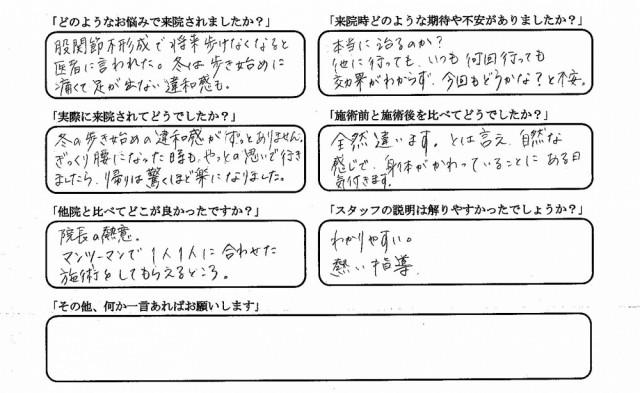 「どのようなお悩みで来院されましたか？」
股関節不形成で将来歩けなくなると
医者に言われた。冬は歩き始めに
痛くて足が出ない違和感も。
「来院時どのような期待や不安がありましたか？」
本当に治るのか？
他に行っても、いつも何回行っても
効果がわからず、今回もどうかな？と不安。
「実際に来院されてどうでしたか？」
冬の歩き始めの違和感がずっとありません。
ぎっくり腰になった時も、やっとの思いで行き
ましたら、帰りは驚くほど楽になりました。
「施術前と施術後を比べてどうでしたか？」
全然違います。とは言え、自然な
感じで、身体がかわっていることにある日
気付きます。
「他院と比べてどこが良かったですか？」
院長の熱意。
マンツーマンで1人1人に合わせた
施術をしてもらえるところ。
「スタッフの説明は解りやすかったでしょうか？」
わかりやすい。
熱い指導
「その他、何か一言あればお願いします」